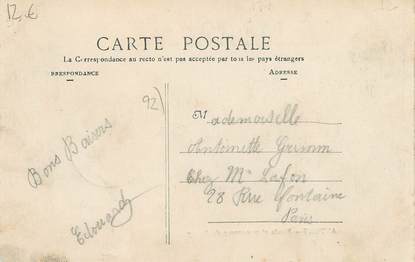 12€
CARTE POSTALE
La Correspondance au recto n'est pas acceptée par tous les pays étrangers
RRESPONDANCE
ADRESSE
92)
Mademoiselle
Antoinette Grimm
Chez Mr Lafon
28 Rue Fontaine
Paris
Bons Baisers
Edouard